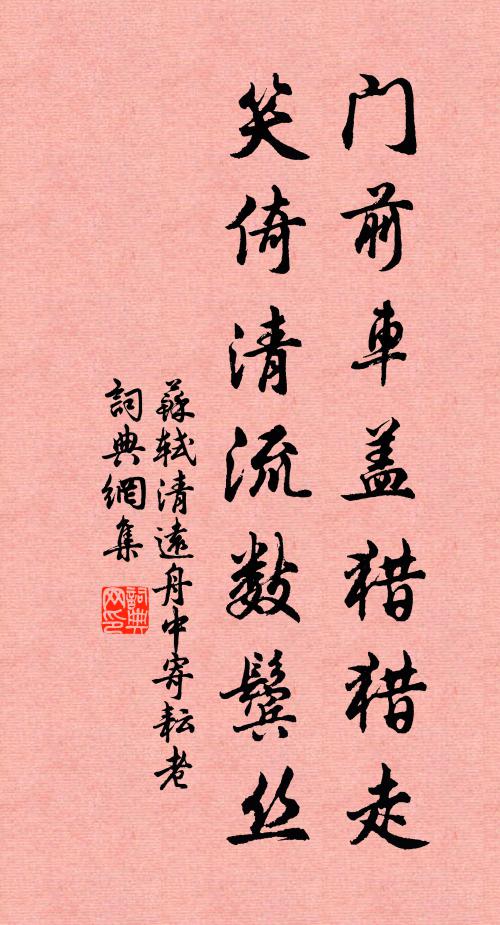 门前車盖猎猎走
笑倚清流数鬓丝
蘇轼清遠舟中寄耘老
詞典網集
詞典网印